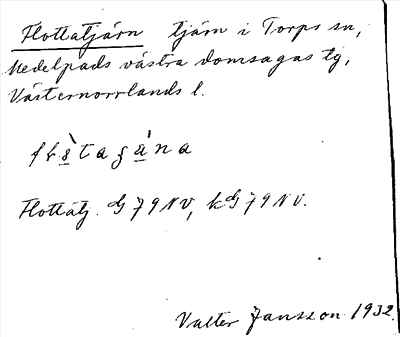 Flottatjärn tjärn i Torps sn,
Medelpads västra domsagas tg,
Västernorrlands l.
Flottatj. G 79 NV, kG 79 NV.
Valter Jansson 1932.